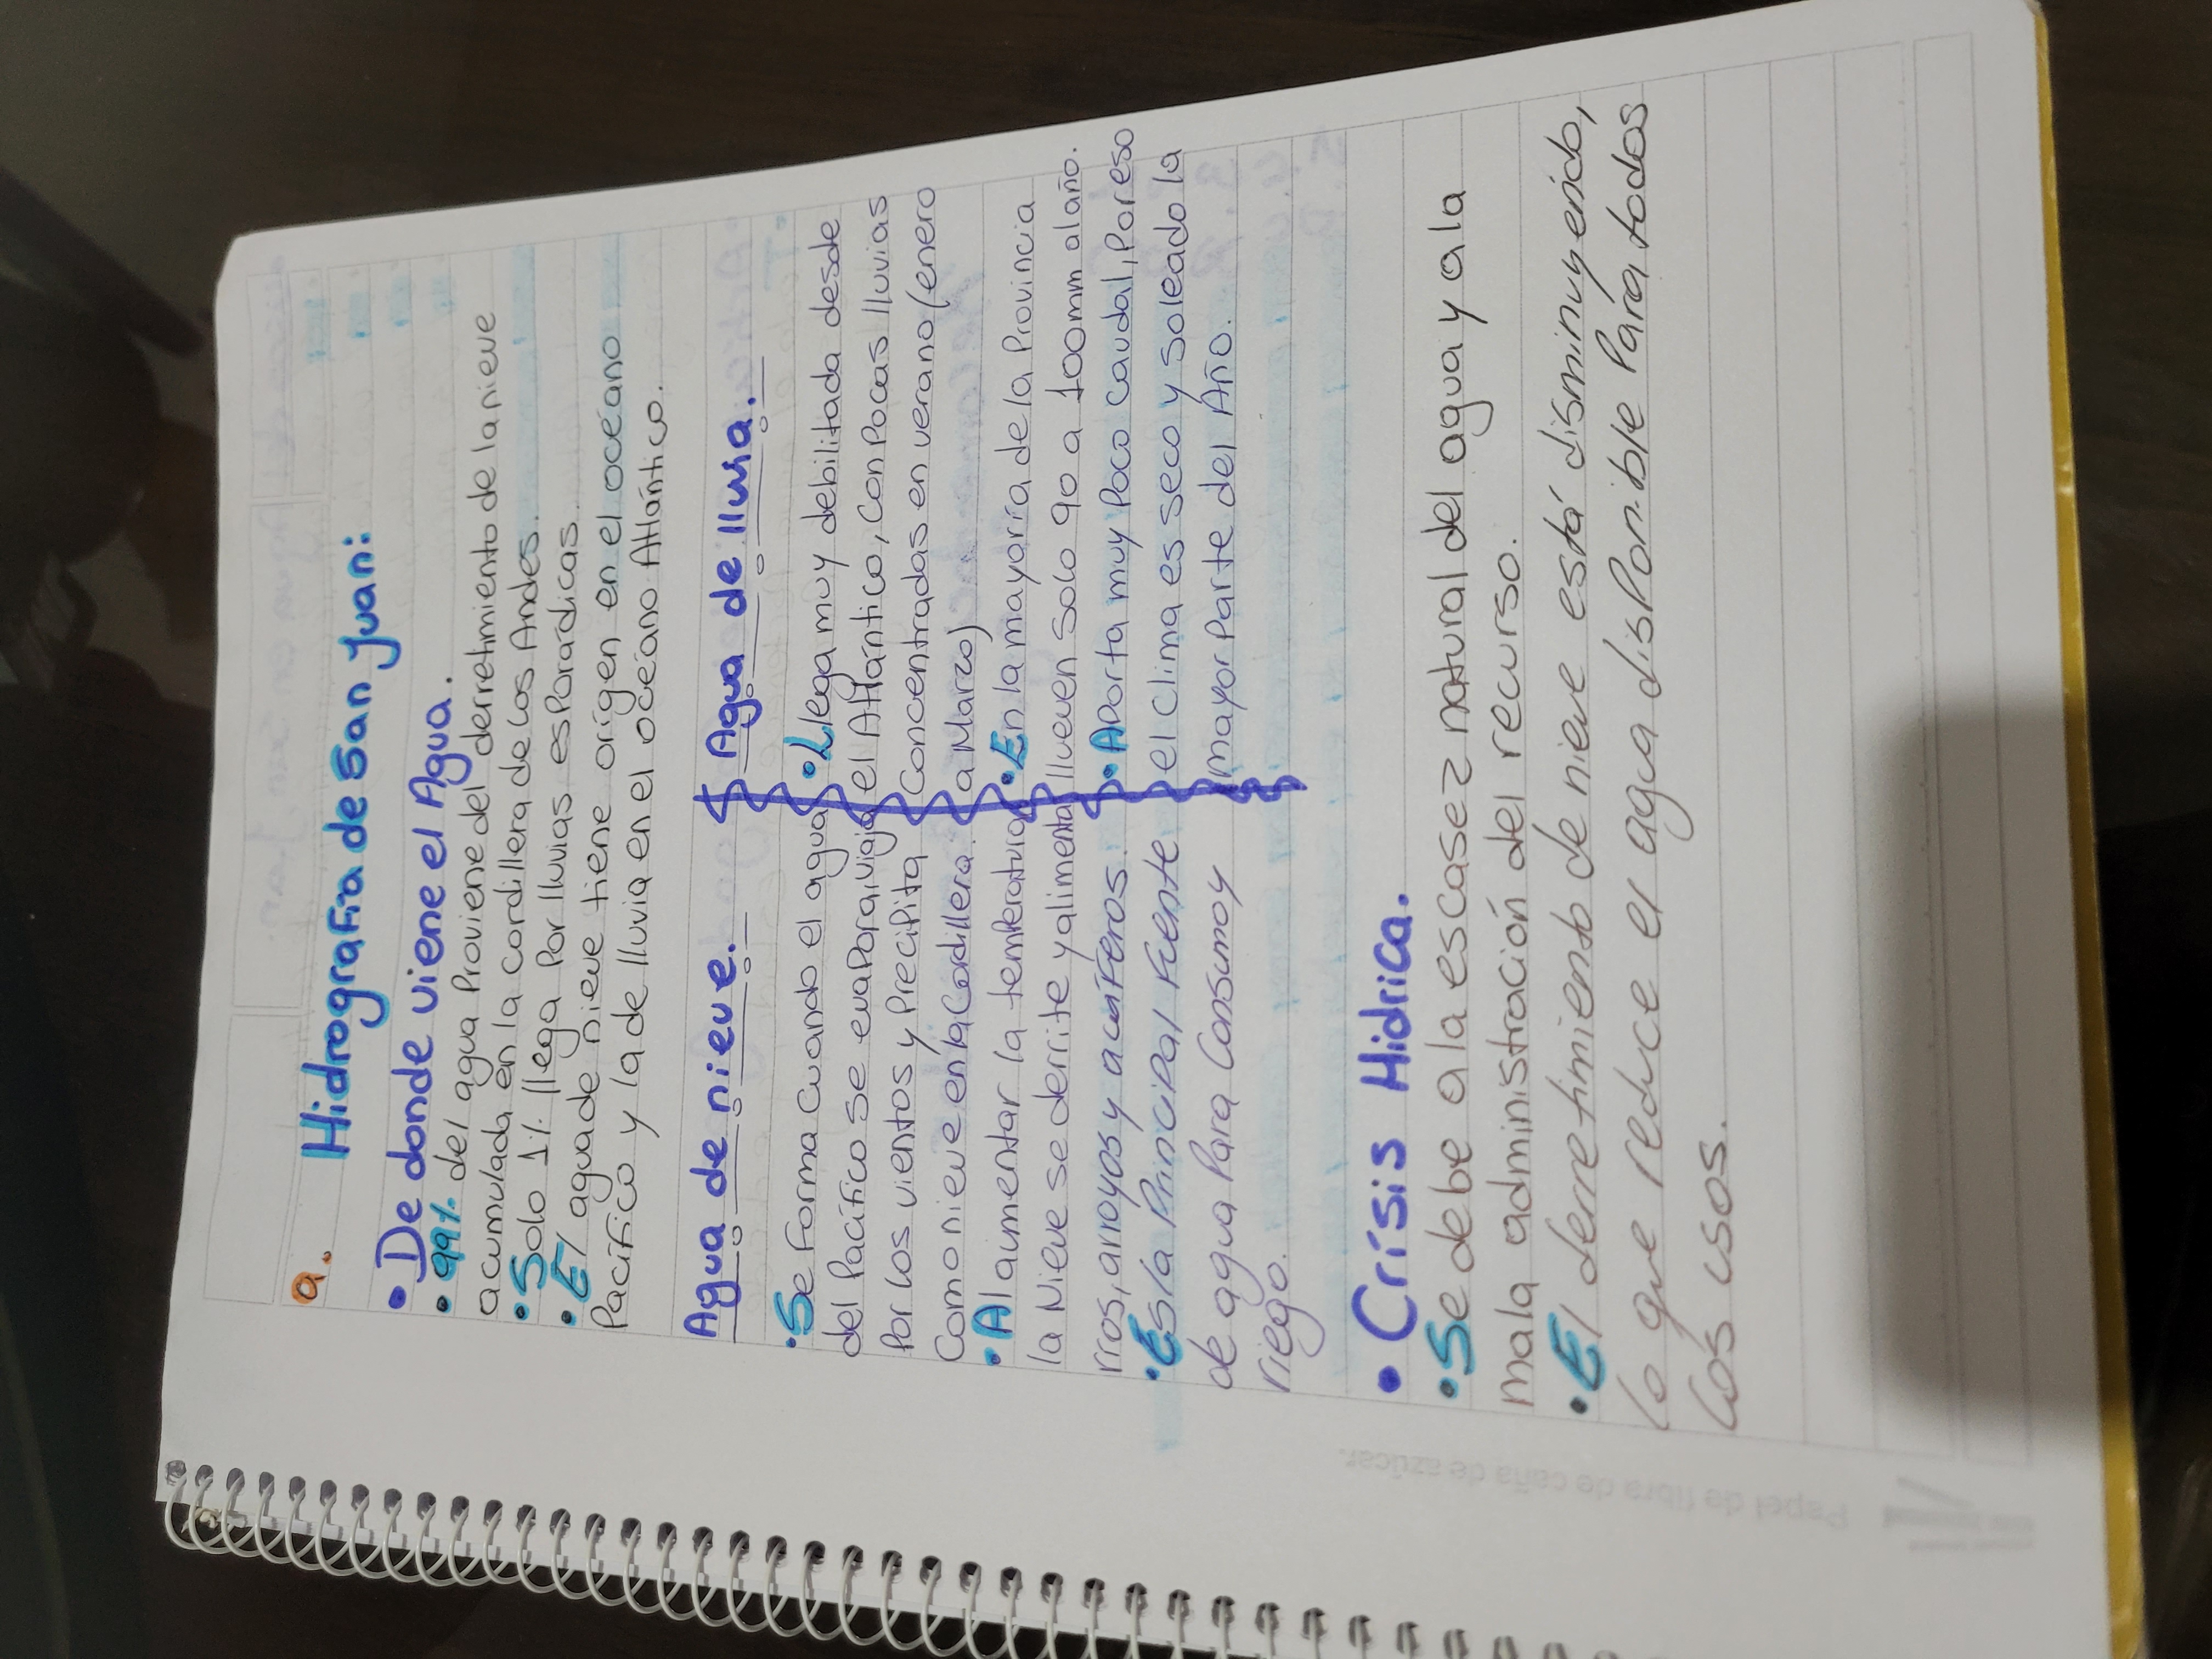 a. Hidrografía de San Juan:
• De donde viene el Agua.
• 99% del agua Proviene del derretimiento de la nieve
acumulada en la cordillera de los Andes.
• Solo 1% llega Por lluvias esParardicas.
• El agua de nieve tiene orígen en el océano
Pacífico y la de lluvia en el océano Atlántico.
Agua de nieve.
• Se Forma cuando el agua
del Pacífico se evaPora, viaja
Por los vientos y PreciPita
Como nieve en la Cordillera.
• Al aumentar la temPeratura
la Nieve se derrite y alimenta
rros, arroyos y acuíFeros.
• Es la PrinciPal Fuente
de agua Para Consumo y
riego.
Agua de lluvia.
• Llega muy debilitada desde
el Atlántico, Con Pocas lluvias
Concentradas en verano (enero
a Marzo)
• En la mayoría de la Provincia
llueven solo 90 a 100mm al año.
• APorta muy Poco caudal, Por eso
el clima es seco y soleado la
mayor Parte del Año.
• Crísis Hídrica.
• Se debe a la escasez natural del agua y a la
mala administración del recurso.
• El derretimiento de nieve está disminuyendo,
lo que reduce el agua disPonible Para todos
los usos.
Papel de fibra de caña de azúcar.